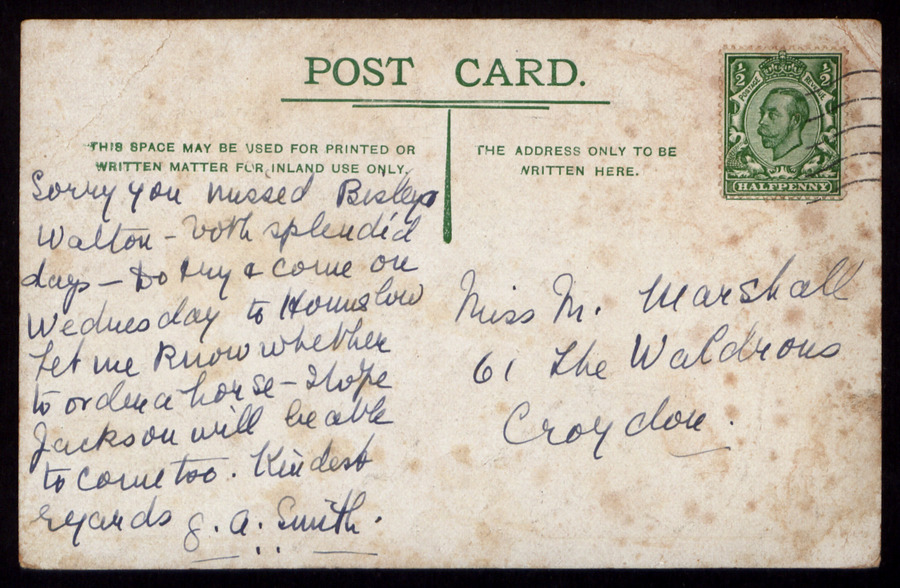 POST CARD.
THIS SPACE MAY BE USED FOR PRINTED OR
WRITTEN MATTER FOR INLAND USE ONLY.
THE ADDRESS ONLY TO BE
WRITTEN HERE.
½ ½
POSTAGE REVENUE
HALFPENNY
Sorry you missed Bisley &
Walton - both splendid
days - Do try & come on
Wednesday to Hounslow
Let me know whether
to order a horse - I hope
Jackson will be able
to come too. Kindest
regards g. a. Smith.
Miss M. Marshall
61 The Waldrons
Croydon.